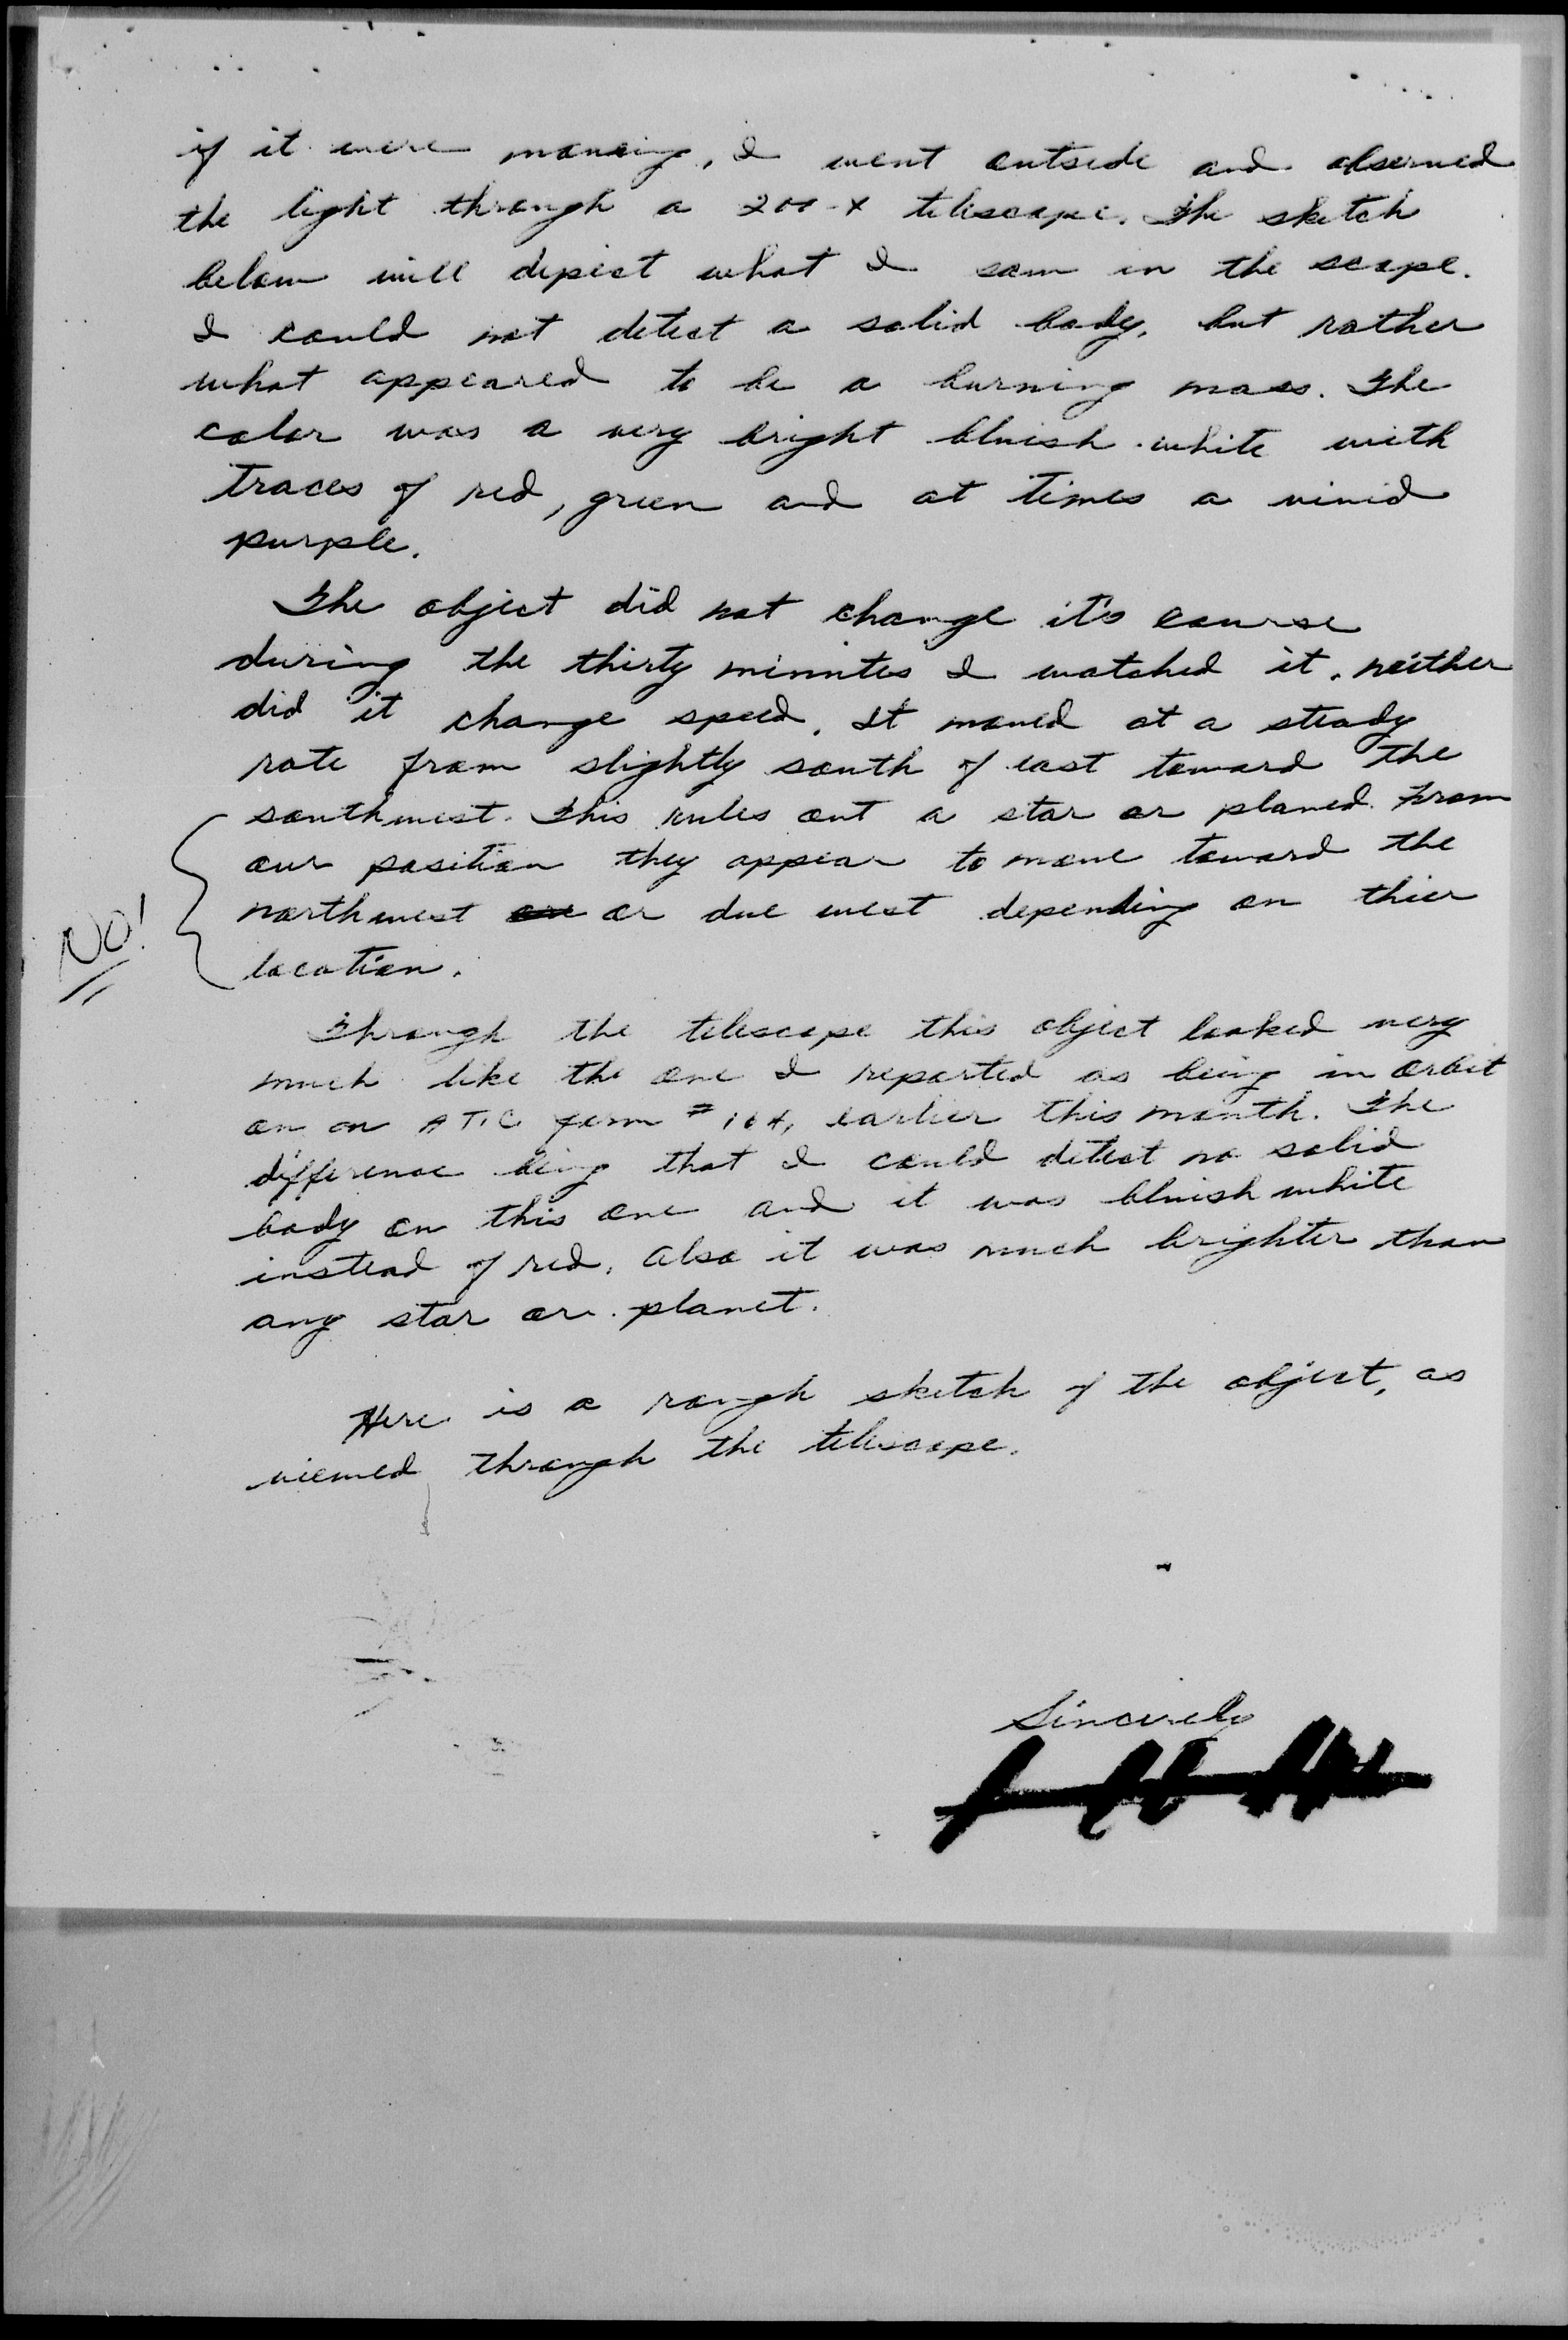 if it were moveing, I went outside and observed
the light through a 200-X telescope. The sketch
below will depict what I saw in the scope.
I could not detect a solid body, but rather
what appeared to be a burning mass. The
color was a very bright bluish-white with
traces of red, green and at times a vivid
purple.
The object did not change it's course
during the thirty minutes I watched it, neither
did it change speed. It moved at a steady
rate from slightly south of east toward the
southwest. This rules out a star or planed. From
our position they appear to move toward the
northwest or due west depending on thier
NO!
location.
Through the telescope this object looked very
much like the one I reported as being in orbit
on an ATIC form # 164, earlier this month. The
difference being that I could detect no solid
body on this one and it was bluish white
instead of red. Also it was much brighter than
any star or planet.
Here is a rough sketch of the object, as
viewed through the telescope.
Sincerely